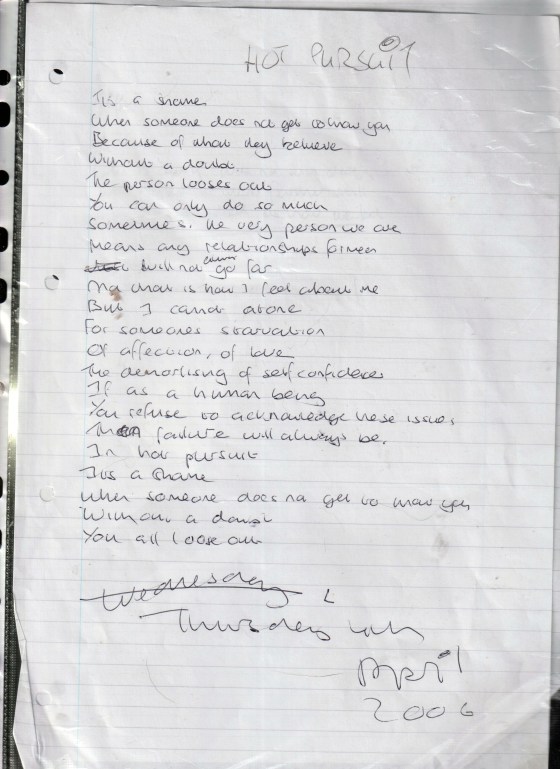 HOT PURSUIT
Its a shame
When someone does not get to know you
Because of what they believe
Without a doubt.
The person looses out
You can only do so much
Sometimes. the very person we are
Means any relationships formed
will not go far
that is how I feel about me
But I cannot atone
For someones starvation
Of affection, of love
The demorlising of self confidence
If as a human being
You refuse to acknowledge these issues
Then failure will always be,
In hot pursuit
Its a shame
When someone does not get to know you
Without a doubt
You all loose out
Wednesday
Thursday
April
2006